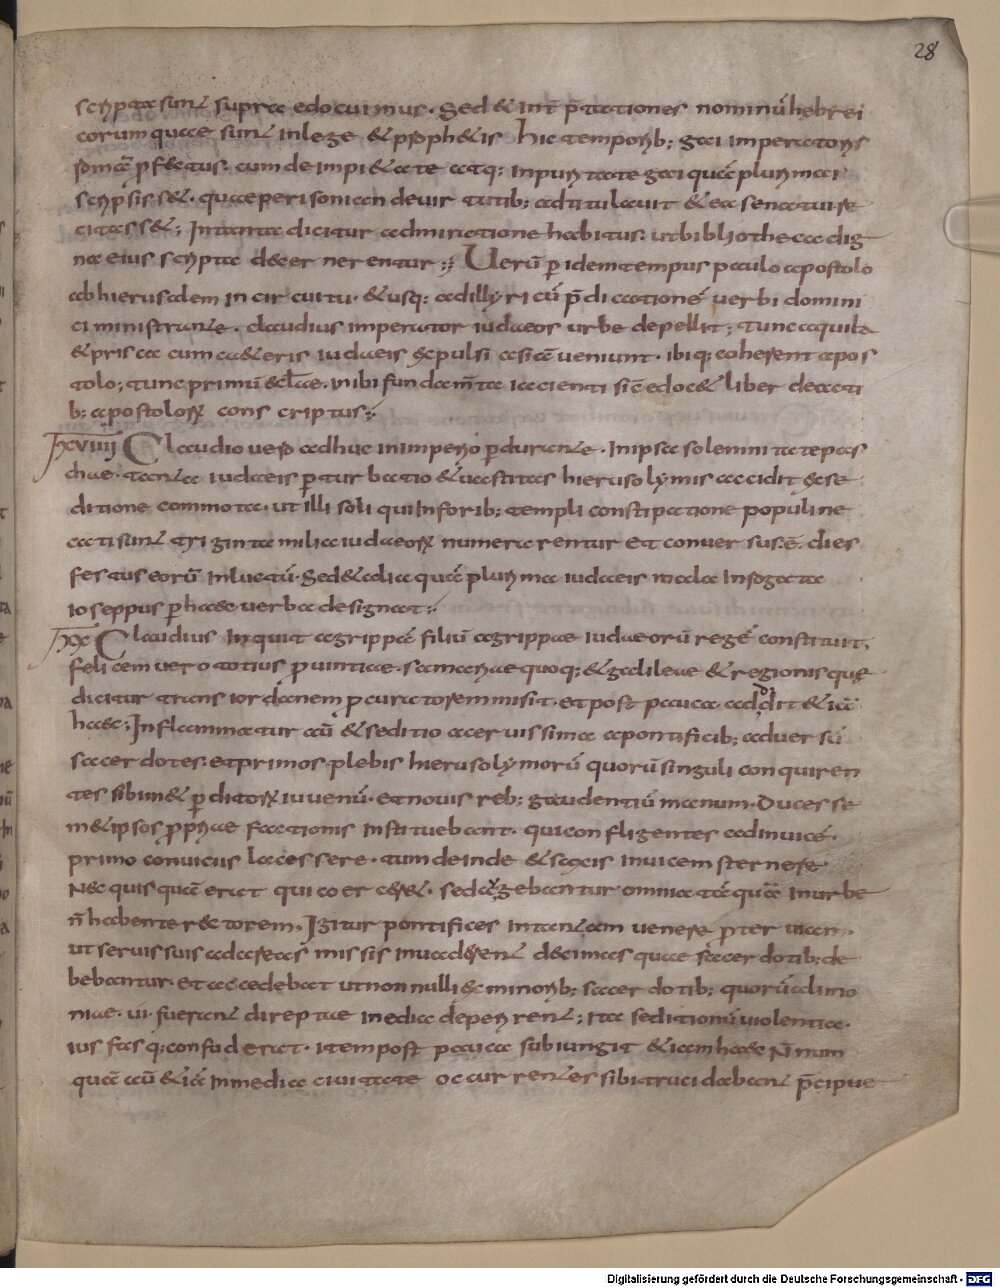 28
scripta sunt supra edocuimus. Sed & int̄ p̄tationes nominū hebrei
corum quae sunt in lege & proph&is hic temporib; gai imperatoris
romā p̄f&ctus. cum de impi&ate atq; in puritate gai quā plurima
scripsiss&. quae per isoniam de virtutib; adtitulavit & ea senatui r&
citass&; In tanta dicitur admiratione habitus. ut bibliothecae dig
na eius scripta decernerentur; Uerū p̱ idem tempus paulo apostolo
ab hierusalem in circuitu. & usq; ad illyricū p̄dicationē verbi domini
ci ministrante. claudius imperator iudaeos urbe depellit; Tunc aquila
& prisca cum ca&eris iudaeis expulsi asiā veniunt. ibiq; coherent apos
tolo; tunc primū & ecl̄ae. inibi fundam̄ta iacienti sic̄ edoc& liber de acti
b; apostoloꝝ conscriptus;
XVIIII Claudio vero adhuc in imperio p̱durante. In ipsa solemnitate pas
chae. tanta iudaeis p̱turbatio & vastitas hierusolymis accidit ex se
ditione commota. ut illi soli qui in forib; templi constipatione populi ne
cati sunt triginta milia iudaeoꝝ numerarentur Et conversus ē. dies
festus eorū in luctū. Sed & alia quā plurima iudaeis mala inrogata
ioseppus p̱ haec verba designat;
XX Claudius inquit agrippā filiū agrippae iudaeorū regē constituit,
felicem vero totius p̱vintiae. samariae quoq; & galileae & regionis quę
dicitur trans iordanem p̱curatorem misit. et post pauca addidit & iā
haec; Inflammatur aū & seditio acervissima a pontificib; adversū
sacerdotes. et primos plebis hierusolymorū quorū singuli conquiren
tes sibim& p̱ditoꝝ iuvenū. et novis reb; gaudentiū manum. Duces se
m&ipsos p̱priae factionis instituebant. qui confligentes adinvicē.
primo conviciis lacessere. tum deinde & saxis invicem sternere
Nec quisquam erat qui coercer&. sed agebantur omnia tāquā in urbe
n̄ habente rectorem. Igitur pontifices in tantam venere p̄ter viam.
ut servis suis ad areas missis invaderent decimas quae sacerdotib; de
bebantur. Et accedebat ut nonnulli ex minorib; sacerdotib; quorū alimo
niae. vi. fuerant direptae inedia deperirent; Ita seditionū violentia.
ius fasq; confuderat. Item post pauca subiungit & iam haec Nn̄ num
quā aū & iā in media civitate occurrentes sibi trucidabant p̄cipue